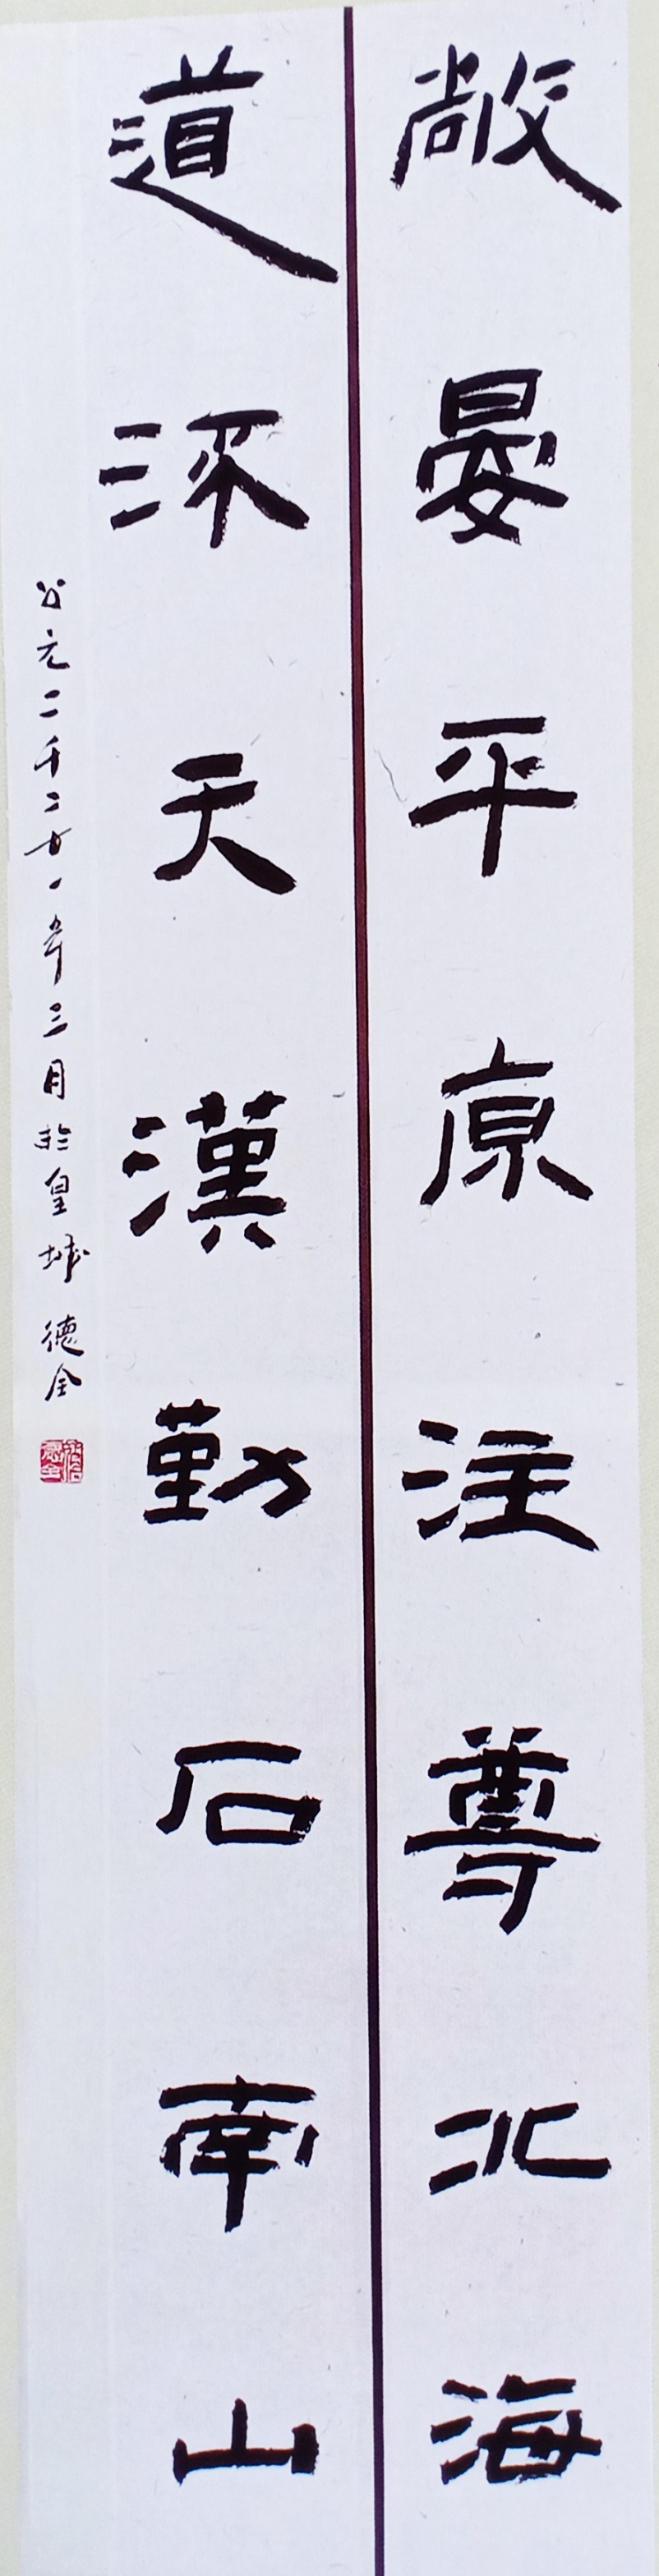 敞晏平原注尊北海
道深天漢勤石南山
公元二千二十一年三月於皇城 德全